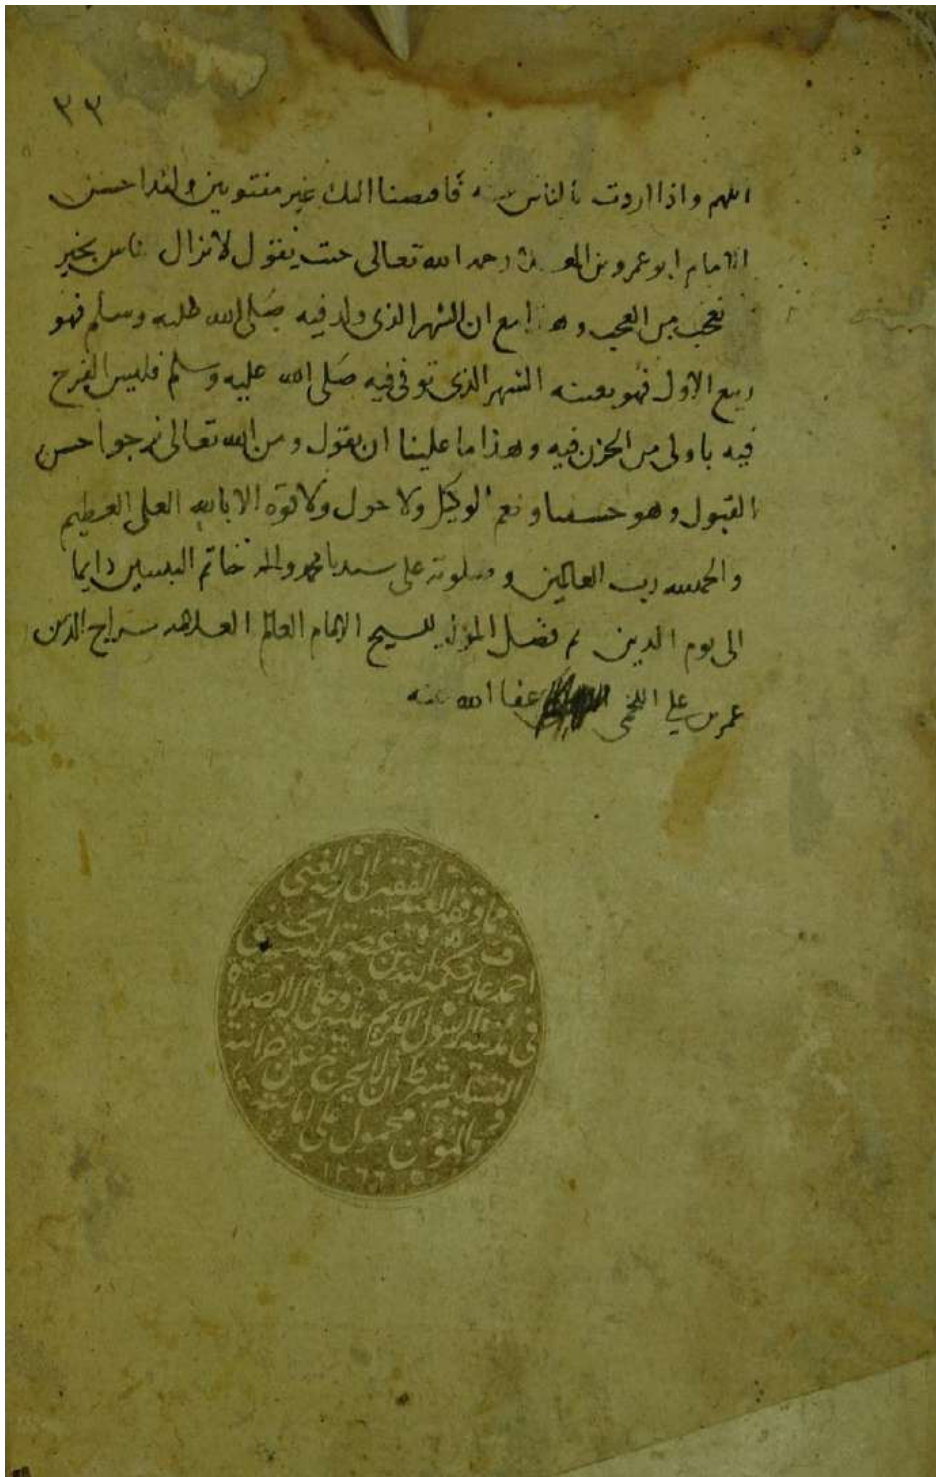 ٣٣
اللهم واذا اردت بالناس فتنة فاقبضنا اليك غير مفتونين ولقد احسن
الامام ابو عمرو بن العلا رحمه الله تعالى حيث يقول لا تزال الناس بخير
تعجب من العجب وهذا مع ان الشهر الذى ولد فيه صلى الله عليه وسلم فهو
ربيع الاول فهو بعينه الشهر الذى توفى فيه صلى الله عليه وسلم فليس الفرح
فيه باولى من الحزن فيه وهذا ما علينا ان نقول ومن الله تعالى نرجوا حسن
القبول وهو حسبنا ونعم الوكيل ولا حول ولا قوة الا بالله العلى العظيم
والحمد لله رب العالمين وصلوته على سيدنا محمد واله خاتم النبيين دايما
الى يوم الدين تم فصل المولد للشيخ الامام العالم العلامه سراج الدين
عمر بن علي اللخمى عفا الله عنه
مما وقفه العبد الفقير الى ربه الغنى
احمد عارف حكمة الله بن عصمة الله الحسينى
فى مدينة الرسول الكريم عليه وعلى آله الصلاة
والتسليم بشرط ان لا يخرج عن خزانته
والمؤمن محمول على امانته
١٢٦٦